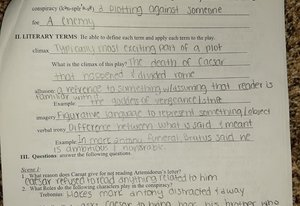 conspiracy (kən-spîr'ə-sē) a plotting against someone
foe A enemy
II. LITERARY TERMS Be able to define each term and apply each term to the play.
climax Typically most exciting part of a plot
What is the climax of this play? The death of Caesar
that happened & divided rome
allusion a refrence to something w/assuming that reader is
familiar with it
Example: the goddess of vengeance
imagery Figurative language to represent something/object
verbal irony Difference between what is said & meant
Example: In marc antony funeral brutus said he
is ambitious & honorable.
III. Questions: answer the following questions
Scene I
1. What reason does Caesar give for not reading Artemidorus's letter?
caesar refused to read anything related to him
2. What Roles do the following characters play in the conspiracy?
Trebonius makes mark antony distracted & away
caesar to bring back his brother who